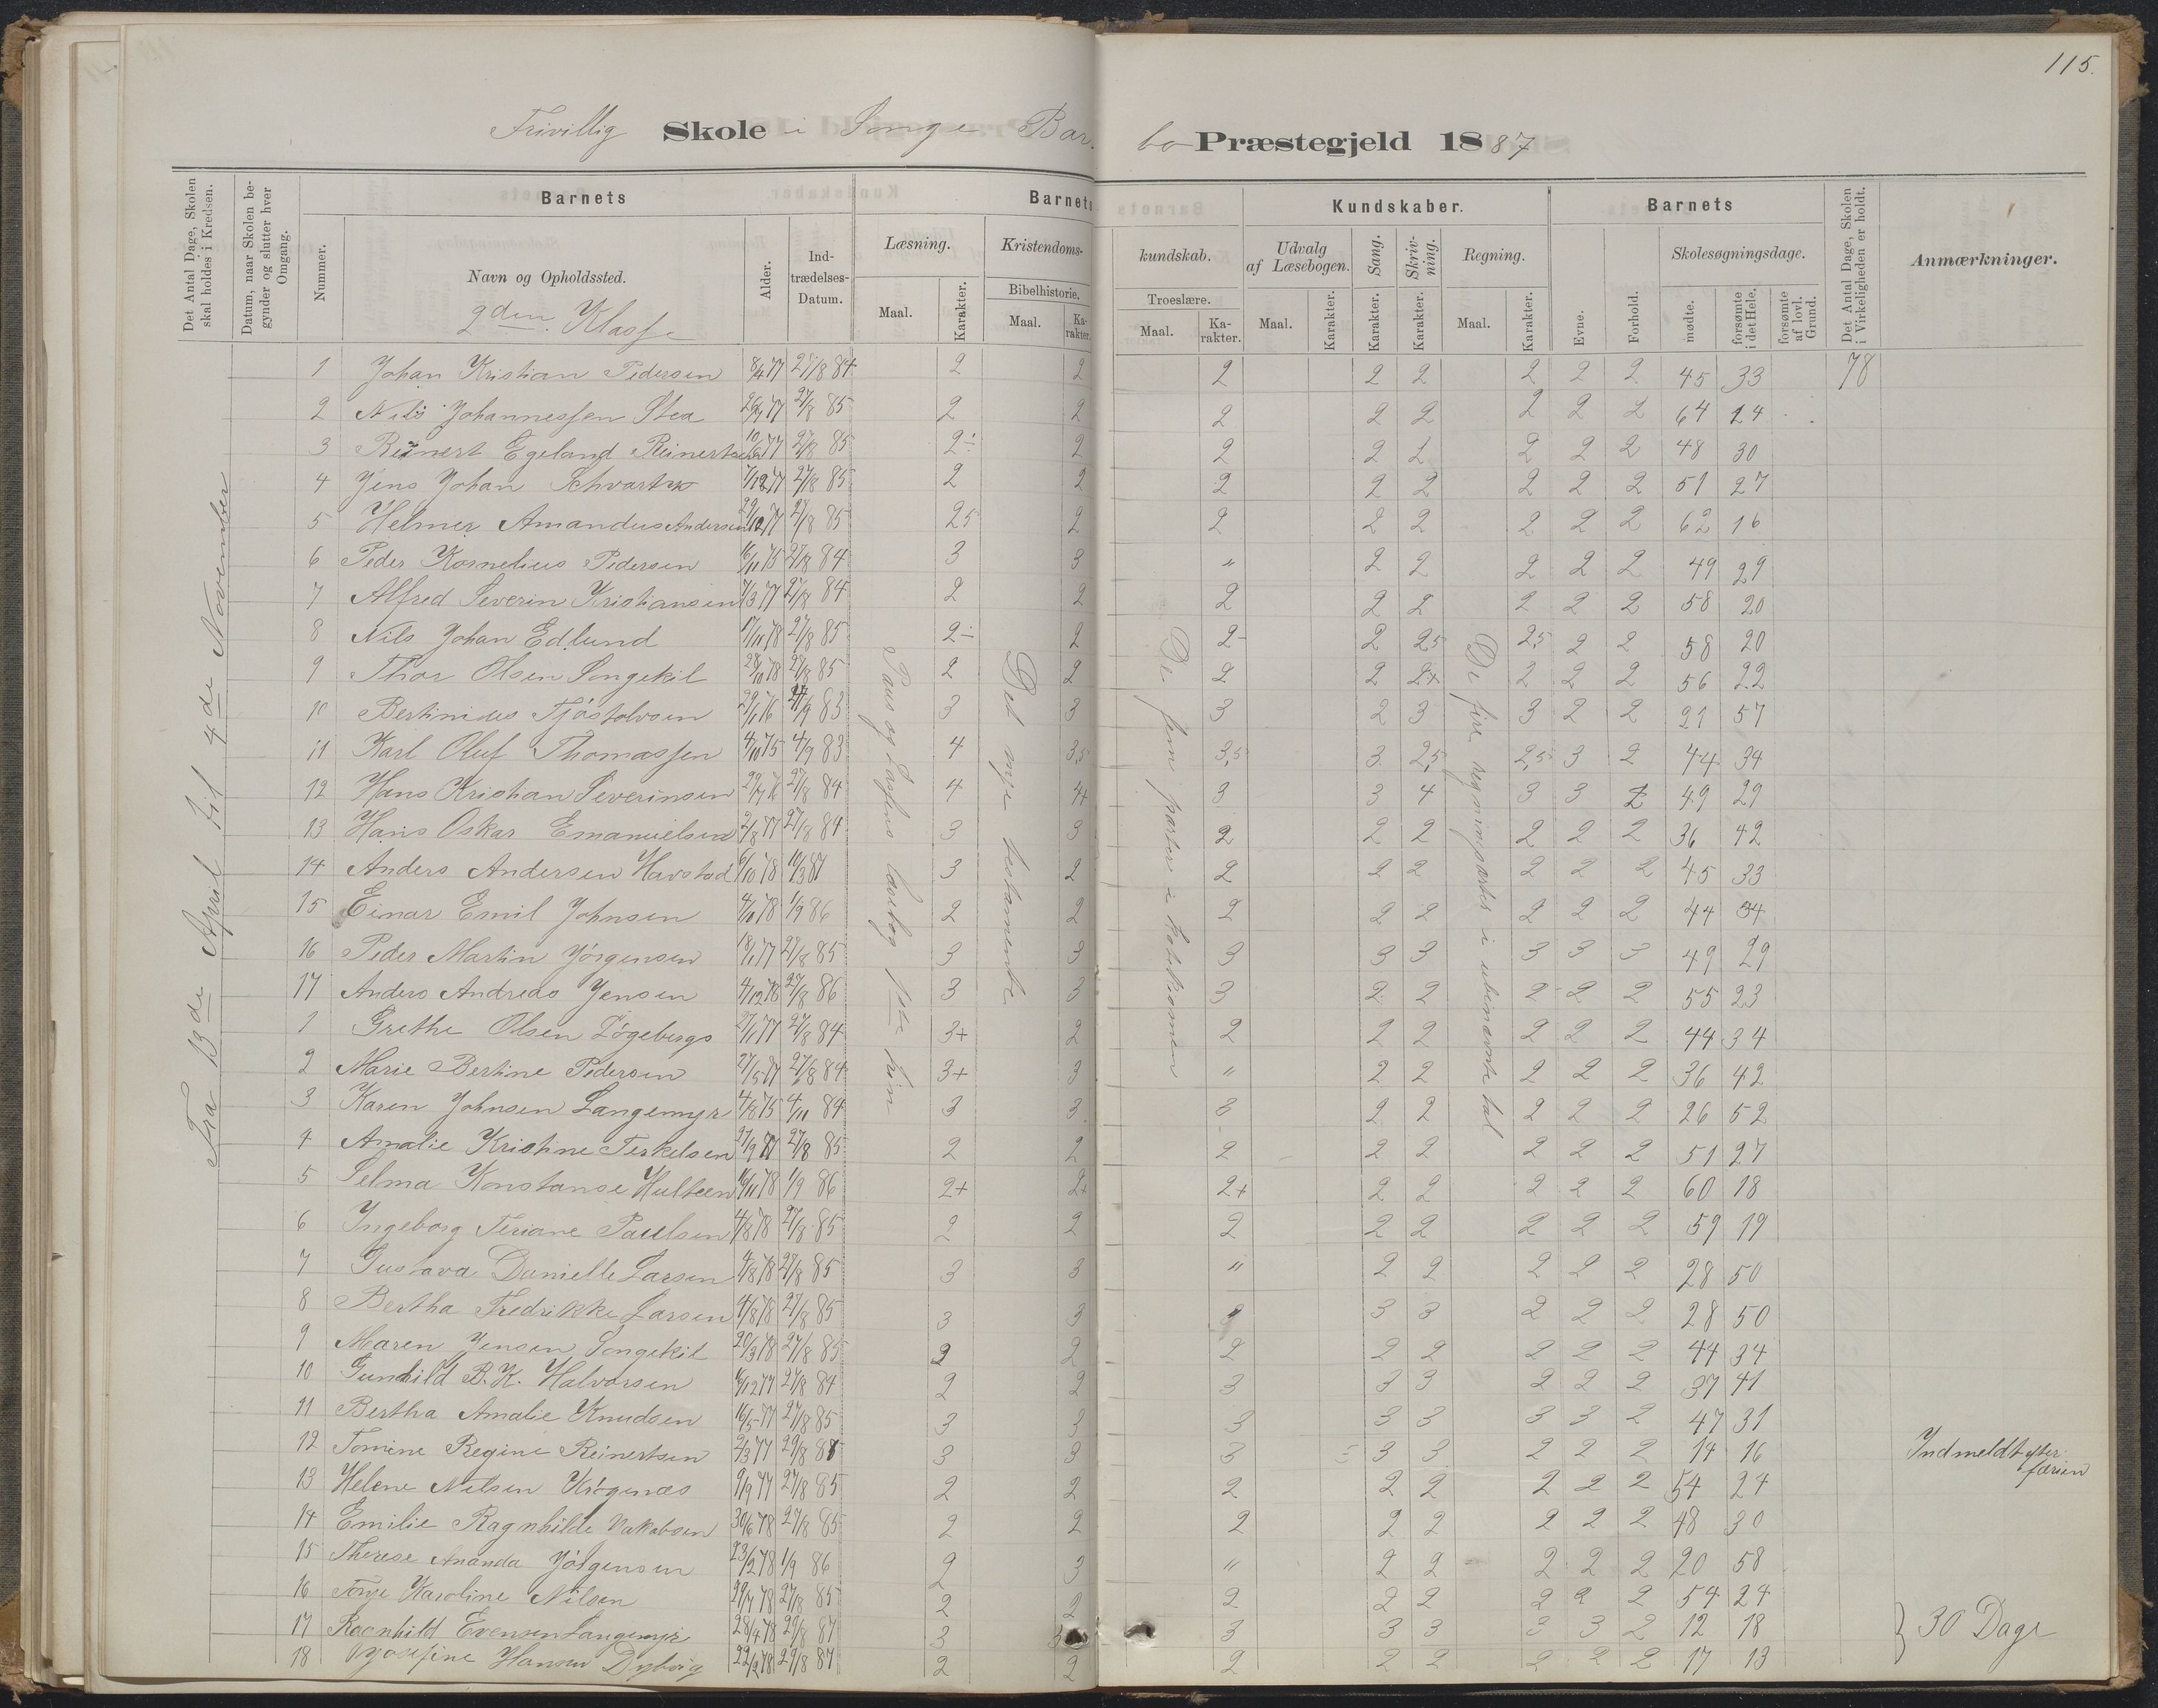 115.
Frivillig Skole i Songe Bar
bo Præstegjeld 1887
Det Antal Dage, Skolen skal holdes i Kredsen.
Datum, naar Skolen begynder og slutter hver Omgang.
Nummer.
Barnets
Navn og Opholdssted.
2den Klasse
Alder.
Ind-
trædelses-
Datum.
Læsning.
Maal.
Karakter.
Barnets
Kristendoms-
Bibelhistorie.
Maal.
Ka-
rakter.
kundskab.
Troeslære.
Maal.
Ka-
rakter.
Kundskaber.
Udvalg
af Læsebogen.
Maal.
Karakter.
Sang.
Karakter.
Skriv-
ning.
Karakter.
Regning.
Maal.
Karakter.
Barnets
Evne.
Forhold.
Skolesøgningsdage.
mødte.
forsømte
i det Hele.
forsømte
af lovl.
Grund.
Det Antal Dage, Skolen
i Virkeligheden er holdt.
Anmærkninger.
Fra 13de April til 4de November
Paus og Lassens læsebog
Det nye testamente
De fem parter i katekismen
De fire regningsarter i ubenævnte tal
1 Johan Kristian Pedersen 8/4 77 27/8 84 2 2 2 2 2 2 2 2 45 33 78
2 Nils Johannessen Stea 77 27/8 85 2 2 2 2 2 2 2 2 64 14
3 Reinert Egeland Reinertsen 10/6 77 27/8 85 2÷ 2 2 2 2 2 2 2 48 30
4 Jens Johan Schvartz 7/12 77 27/8 85 2 2 2 2 2 2 2 2 51 27
5 Helmer Amandus Andersen 77 27/8 85 25 2 2 2 2 2 2 2 62 16
6 Peder Kornelius Pedersen 16/11 75 27/8 84 3 3 " 2 2 2 2 2 49 29
7 Alfred Severin Kristiansen 7/3 77 27/8 84 2 2 2 2 2 2 2 2 58 20
8 Nils Johan Edlund 17/11 78 27/8 85 2÷ 2 2- 2 2,5 2,5 2 2 58 20
9 Thor Olsen Songekil 28/10 78 27/8 85 2 2 2 2 2+ 2 2 2 56 22
10 Bertinius Tjøstolvsen 29/1 76 83 3 3 3 2 3 3 2 2 21 57
11 Karl Oluf Thomassen 4/10 75 4/9 83 4 3,5 3,5 3 2,5 2,5 3 2 44 34
12 Hans Kristian Severinsen 29/7 76 27/8 84 4 4+ 3 3 4 3 3 2 49 29
13 Hans Oskar Emanuelsen 2/8 77 27/8 84 3 3 2 2 2 2 2 2 36 42
14 Anders Andersen Havstad 6/10 78 10/3 87 3 2 2 2 2 2 2 2 45 33
15 Einar Emil Johnsen 4/10 78 1/9 86 2 2 2 2 2 2 2 2 44 34
16 Peder Martin Jørgensen 18/1 77 27/8 85 3 3 3 3 3 3 3 3 49 29
17 Anders Andreas Jensen 4/12 78 27/8 86 3 3 3 2 2 2 2 2 55 23
1 Grethe Olsen Løgebergs 27/1 77 27/8 84 3+ 2 2 2 2 2 2 2 44 34
2 Marie Bertine Pedersen 27/5 77 27/8 84 3+ 3 " 2 2 2 2 2 36 42
3 Karen Johnsen Langemyr 4/8 75 4/11 84 3 3 3 2 2 2 2 2 26 52
4 Amalie Kristine Terkelsen 27/9 77 27/8 85 2 2 2 2 2 2 2 2 51 27
5 Selma Konstanse Hulteen 16/11 78 1/9 86 2+ 2+ 2+ 2 2 2 2 2 60 18
6 Ingeborg Teriane Paulsen 4/8 78 27/8 85 2 2 2 2 2 2 2 2 59 19
7 Gustava Danielle Larsen 4/8 78 27/8 85 3 3 " 2 2 2 2 2 28 50
8 Bertha Fredrikke Larsen 4/8 78 27/8 85 3 3 3 3 2 2 2 28 50
9 Maren Jensen Songekil 20/3 78 27/8 85 2 2 2 2 2 2 2 2 44 34
10 Gunhild B.K. Halvorsen 16/12 77 27/8 84 2 2 3 3 3 2 2 2 37 41
11 Bertha Amalie Knudsen 16/5 77 27/8 85 3 3 3 3 3 3 3 2 47 31
12 Tomine Regine Reinertsen 2/3 77 29/8 3 3 3 3 3 2 2 2 14 16 Indmeldt efter
ferien
13 Helene Nilsen Krøgenæs 9/9 77 27/8 85 2 2 2 2 2 2 2 2 54 24
14 Emilie Ragnhilde Jakobsen 30/6 78 27/8 85 2 2 2 2 2 2 2 2 48 30
15 Therese Ananda Jørgensen 23/2 78 1/9 86 2 3 " 2 2 2 2 2 20 58
16 Karoline Nilsen 29/7 78 27/8 85 2 2 2 2 2 2 2 2 54 24
17 Ragnhild Evensen Langemyr 28/4 78 29/8 87 3 3 3 3 3 3 3 2 12 18
} 30 Dage
18 Josefine Hansen Dyborg 22/2 78 29/8 87 2 2 2 2 2 2 2 2 17 13